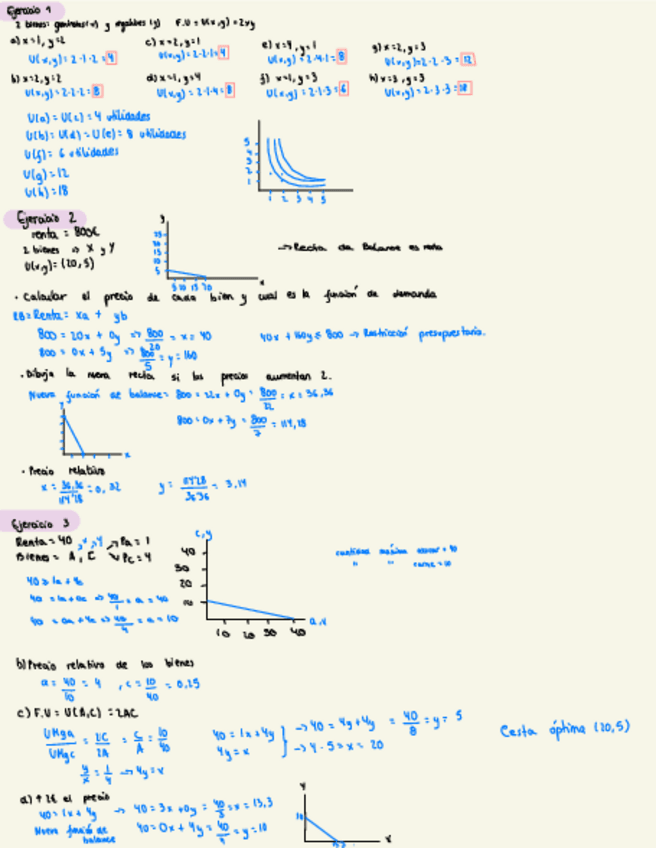 Ejercicio 1
2 bienes: y F.U = U(x,y) = 2xy
a) x=1, y=2
U(x,y) = 2·1·2 = 4
c) x=2, y=1
U(x,y) = 2·2·1 = 4
e) x=4, y=1
U(x,y) = 2·4·1 = 8
g) x=2, y=3
U(x,y) = 2·2·3 = 12
b) x=2, y=2
U(x,y) = 2·2·2 = 8
d) x=1, y=4
U(x,y) = 2·1·4 = 8
f) x=1, y=3
U(x,y) = 2·1·3 = 6
h) x=3, y=3
U(x,y) = 2·3·3 = 18
U(a) = U(c) = 4 utilidades
U(b) = U(d) = U(e) = 8 utilidades
U(f) = 6 utilidades
U(g) = 12
U(h) = 18
5
4
3
2
1
1 2 3 4 5
Ejercicio 2
renta = 800€
2 bienes => x y y
U(x,y) = (20,5)
y
5
5 10 15 20
x
-> Recta de Balance es renta
· Calcular el precio de cada bien y cual es la función de demanda
RB = Renta = xa + yb
800 = 20x + 0y => 800/20 = x = 40
800 = 0x + 5y => 800/5 = y = 160
40x + 160y ≤ 800 -> Restricción presupuestaria.
· Dibuja la nueva recta si los precios aumentan 2.
Nueva función de balance = 800 = 22x + 0y = 800/22 = x = 36,36
800 = 0x + 7y = 800/7 = 114,28
x
· Precio relativo
x = 36,36/114'28 = 0,32
y = 114'28/36'36 = 3,14
Ejercicio 3
Renta = 40 x, y -> Pa = 1
Bienes = A, C -> Pc = 4
40 ≥ 1a + 4c
40 = 1a + 0c => 40/1 = a = 40
40 = 0a + 4c => 40/4 = a = 10
c,y
40
30
20
10
10 20 30 40
a,x
cantidad máxima azucar = 40
" " carne = 10
b) Precio relativo de los bienes
a = 40/10 = 4 , c = 10/40 = 0,25
c) F.U = U(A,C) = 2AC
UMga/UMgc = 2C/2A = C/A = 10/40
y/x = 1/4 -> 4y = x
40 = 1x + 4y
4y = x
-> 40 = 4y + 4y = 40/8 = y = 5
-> 4·5 = x = 20
Cesta óptima (20,5)
d) + 2€ el precio
40 = 1x + 4y -> 40 = 3x + 0y = 40/3 = x = 13,3
Nueva función de balance
40 = 0x + 4y = 40/4 = y = 10
y
10
x